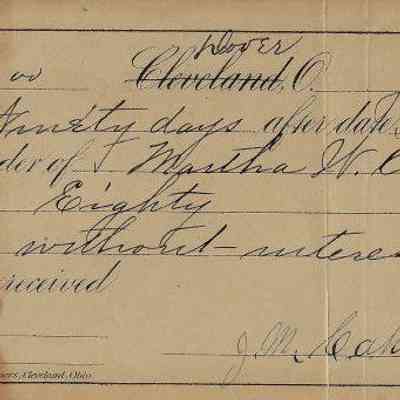 Dover
00 Cleveland, O.
Ninety days after date
der of Martha W. C
Eighty
without interes
received
J. M. Cah
ers, Cleveland, Ohio.